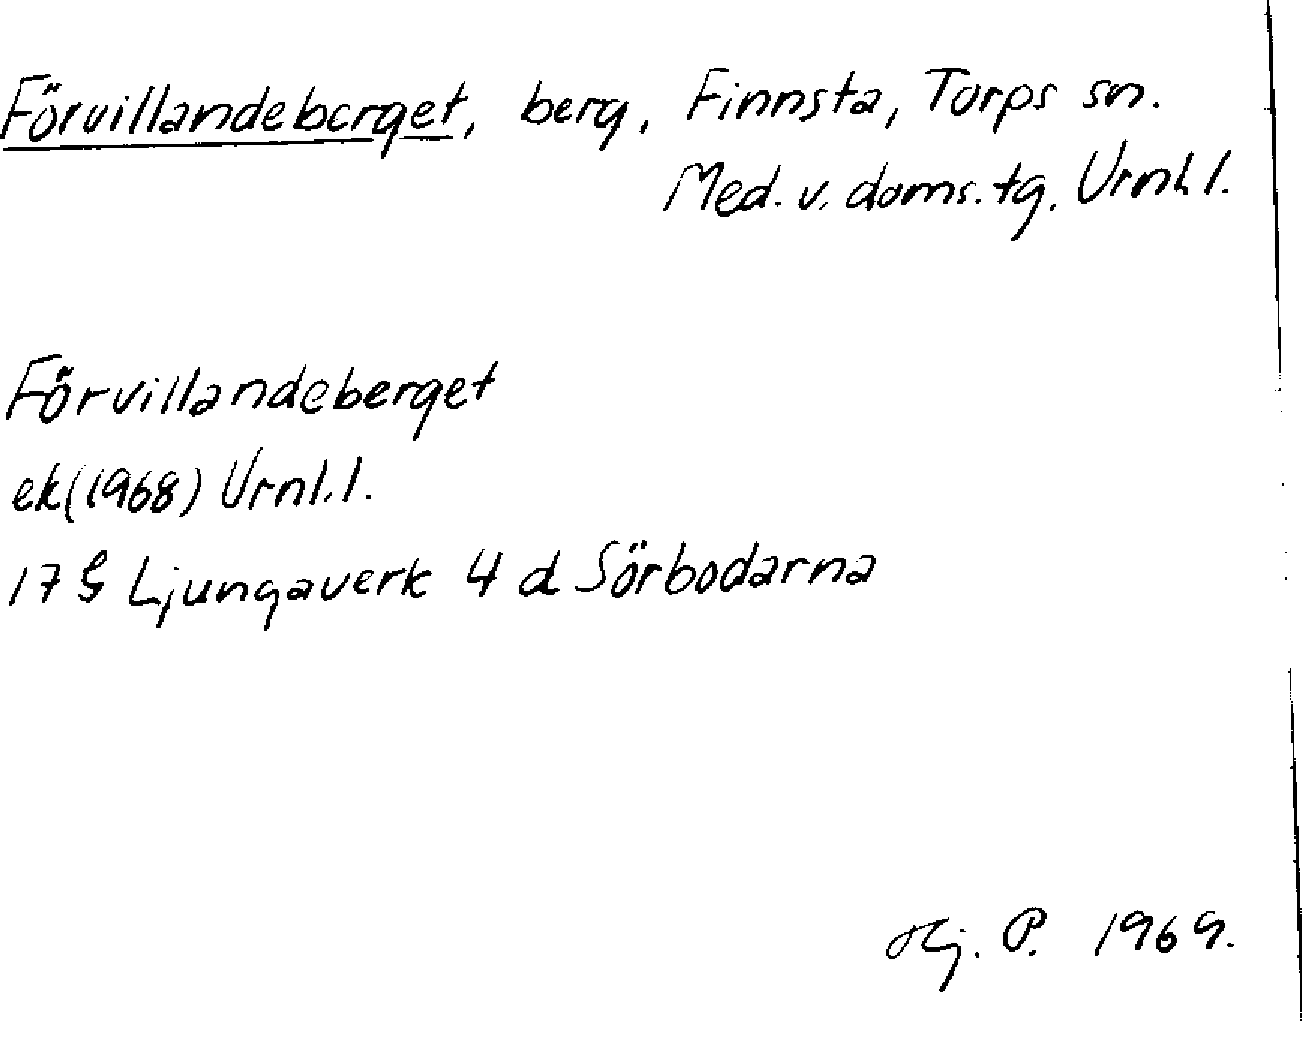 Förvillandeberget, berg, Finnsta, Torps sn.
Med. v. doms. tg. Vrnl. l.
Förvillandeberget
ek (1968) Vrnl. l.
17 G Ljungaverk 4 d Sörbodarna
Hj. P. 1969.